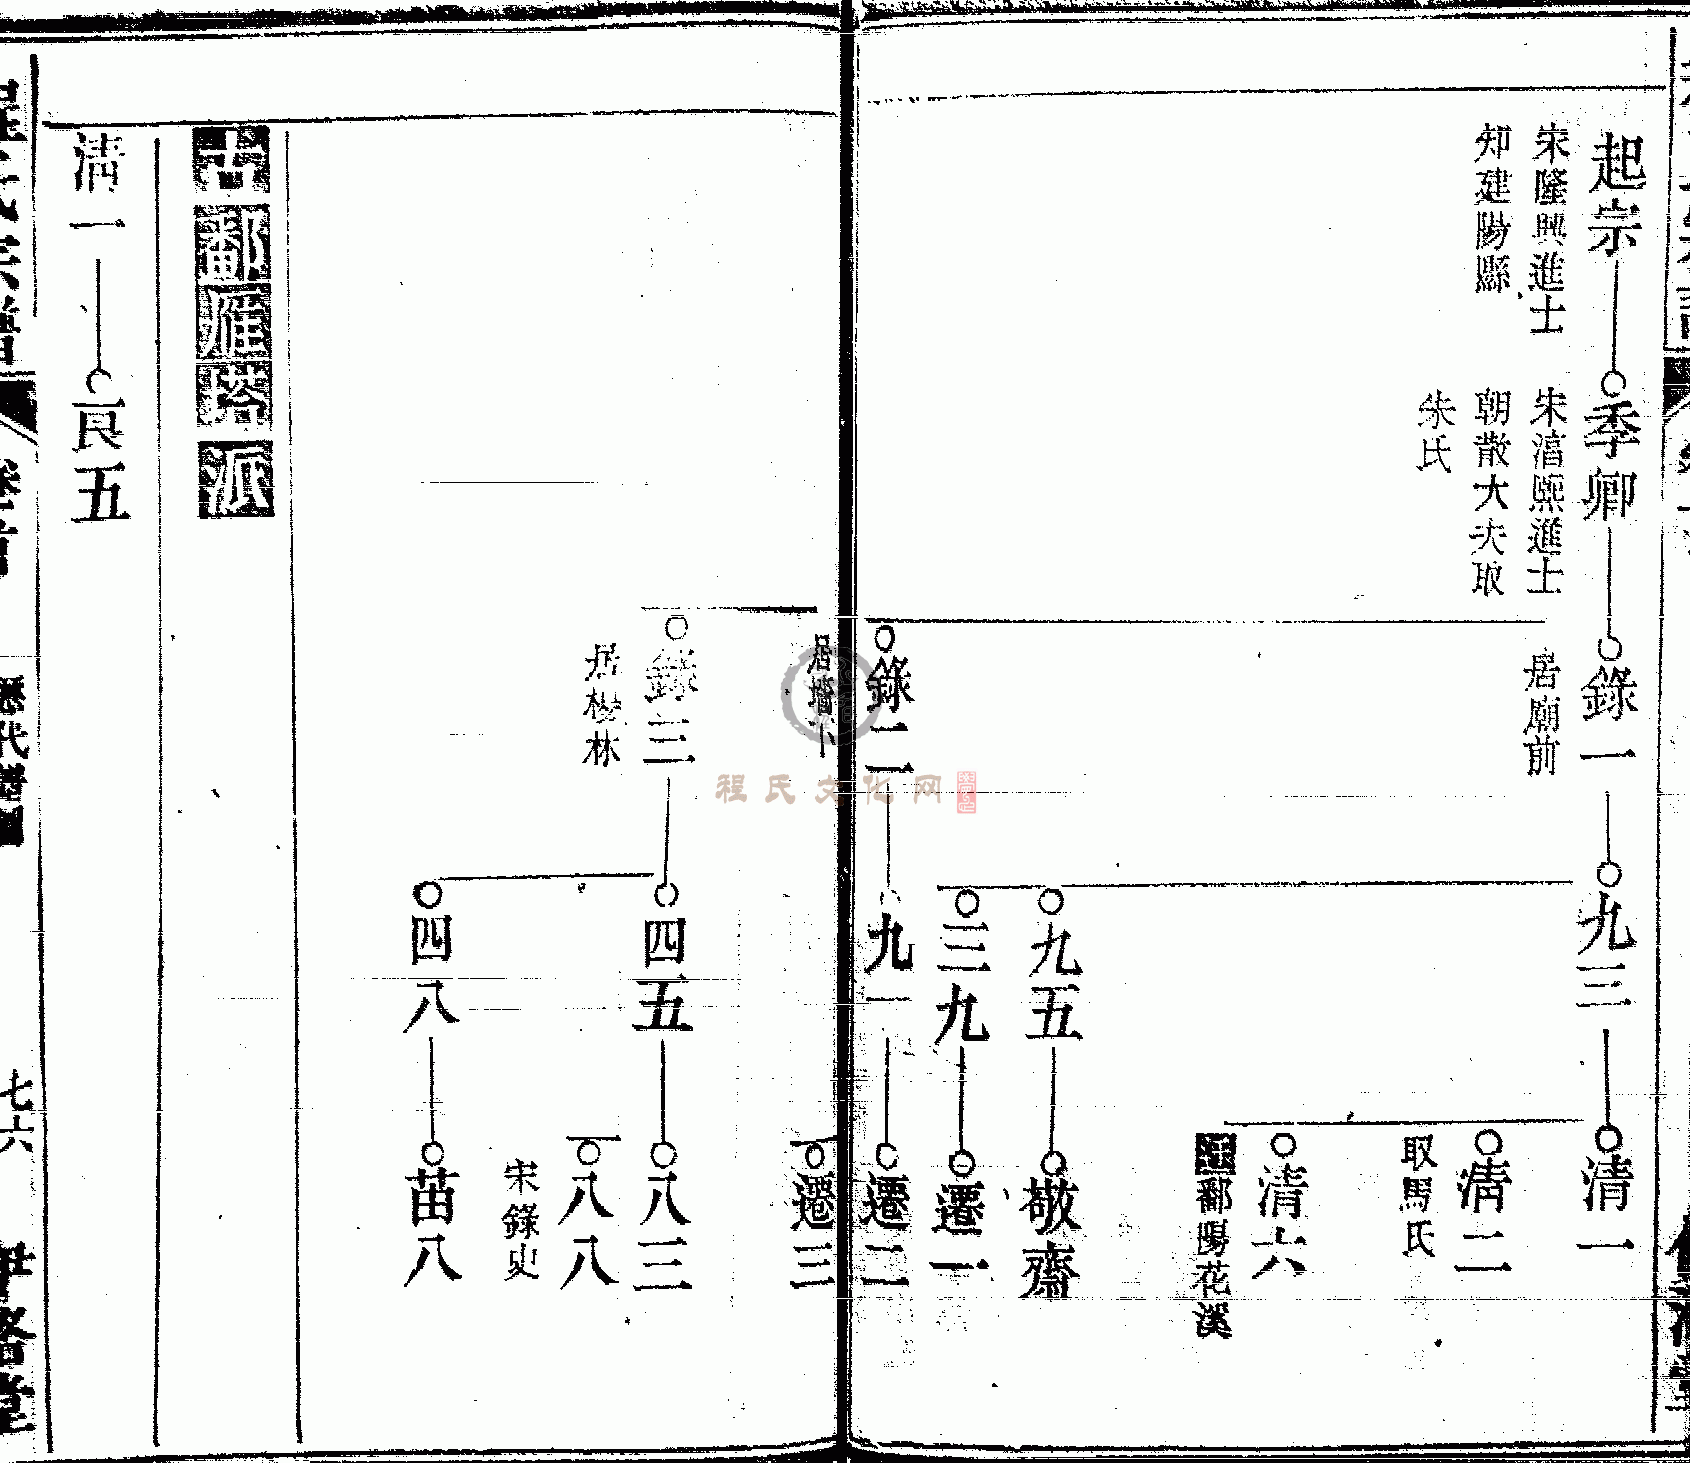 起宗
宋隆興進士
知建陽縣
季卿
宋淳熙進士
朝散大夫取
朱氏
錄一
居廟前
九三
清一
清二
取馬氏
清六
遷鄱陽花溪
九五
敬齋
三九
遷一
錄二
九一
遷二
遷三
錄三
居樾林
四五
八三
八八
宋錄史
四八
苗八
古鄱雁塔派
清一
良五
歷代譜圖
七六
程氏文化网